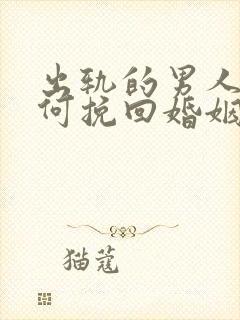 出轨的男人
何挽回婚姻
猫蔻